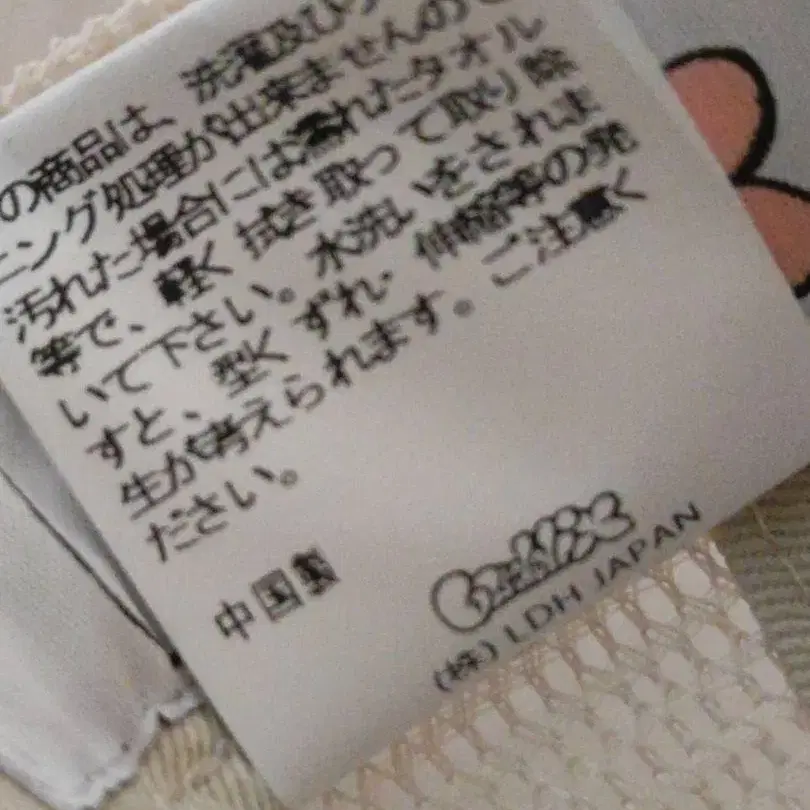 の商品は、洗濯及び
ニング処理が出来ませんの
汚れた場合には濡れたタオル
等で、軽く拭き取って取り除
いて下さい。水洗いをされま
すと、型くずれ・伸縮等の発
生が考えられます。ご注意く
ださい。
中国製
(株) LDH JAPAN